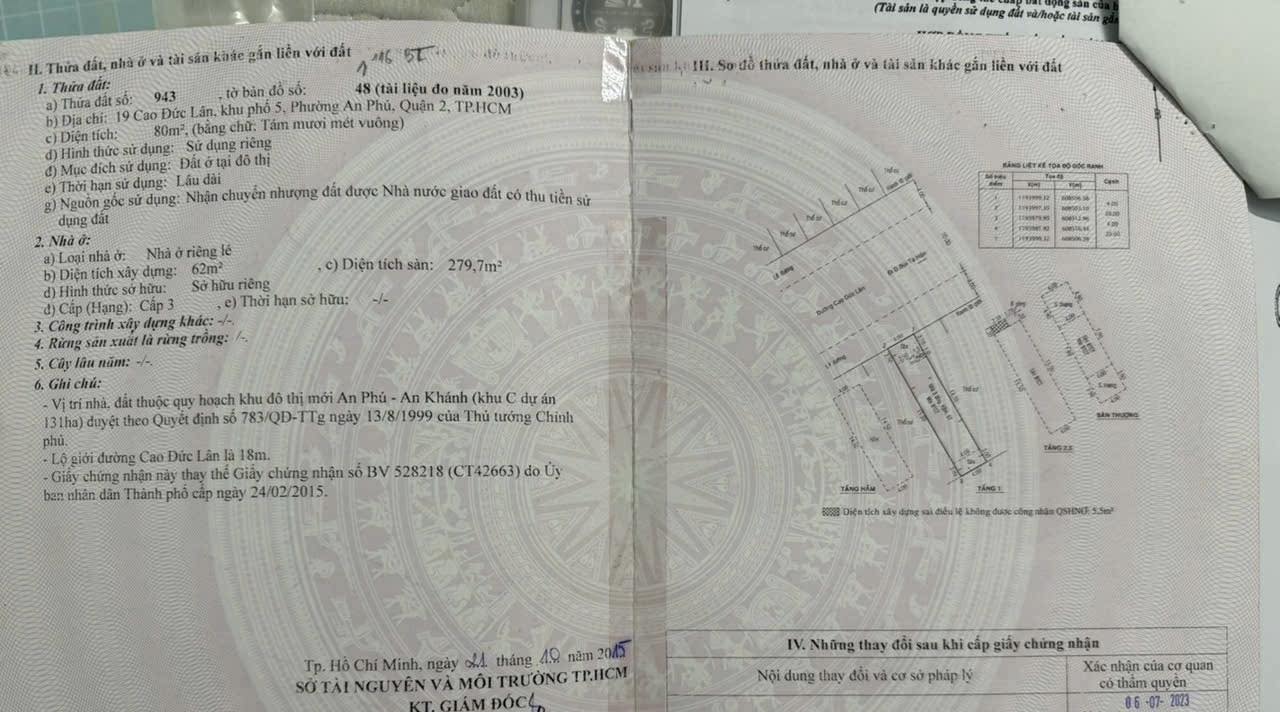 (Tài sản là quyền sử dụng đất và/hoặc tài sản gắn
II. Thửa đất, nhà ở và tài sản khác gắn liền với đất
1. Thửa đất:
a) Thửa đất số: 943 , tờ bản đồ số: 48 (tài liệu đo năm 2003)
b) Địa chỉ: 19 Cao Đức Lân, khu phố 5, Phường An Phú, Quận 2, TP.HCM
c) Diện tích: 80m², (bằng chữ: Tám mươi mét vuông)
d) Hình thức sử dụng: Sử dụng riêng
đ) Mục đích sử dụng: Đất ở tại đô thị
e) Thời hạn sử dụng: Lâu dài
g) Nguồn gốc sử dụng: Nhận chuyển nhượng đất được Nhà nước giao đất có thu tiền sử
dụng đất
2. Nhà ở:
a) Loại nhà ở: Nhà ở riêng lẻ
b) Diện tích xây dựng: 62m² , c) Diện tích sàn: 279,7m²
d) Hình thức sở hữu: Sở hữu riêng
đ) Cấp (Hạng): Cấp 3 , e) Thời hạn sở hữu: -/-
3. Công trình xây dựng khác: -/-.
4. Rừng sản xuất là rừng trồng: -/-.
5. Cây lâu năm: -/-.
6. Ghi chú:
- Vị trí nhà, đất thuộc quy hoạch khu đô thị mới An Phú - An Khánh (khu C dự án
131ha) duyệt theo Quyết định số 783/QĐ-TTg ngày 13/8/1999 của Thủ tướng Chính
phủ.
- Lộ giới đường Cao Đức Lân là 18m.
- Giấy chứng nhận này thay thế Giấy chứng nhận số BV 528218 (CT42663) do Ủy
ban nhân dân Thành phố cấp ngày 24/02/2015.
Tp. Hồ Chí Minh, ngày 21 tháng 10 năm 2015
SỞ TÀI NGUYÊN VÀ MÔI TRƯỜNG TP.HCM
KT. GIÁM ĐỐC
III. Sơ đồ thửa đất, nhà ở và tài sản khác gắn liền với đất
B
BẢNG LIỆT KÊ TỌA ĐỘ GÓC RANH
Số hiệu điểm Tọa độ Cạnh
X(m) Y(m)
4.00
20.00
4.00
20.00
Thổ cư
Thổ cư
Thổ cư
Thổ cư
Thổ cư
Lề đường
Đường Cao Đức Lân
Lề đường
Thổ cư
Thổ cư
SÂN THƯỢNG
TẦNG 2,3
TẦNG HẦM
TẦNG 1
Diện tích xây dựng sai điều lệ không được công nhận QSHNƠ: 5,5m²
IV. Những thay đổi sau khi cấp giấy chứng nhận
Nội dung thay đổi và cơ sở pháp lý
Xác nhận của cơ quan
có thẩm quyền
06 -07- 2023